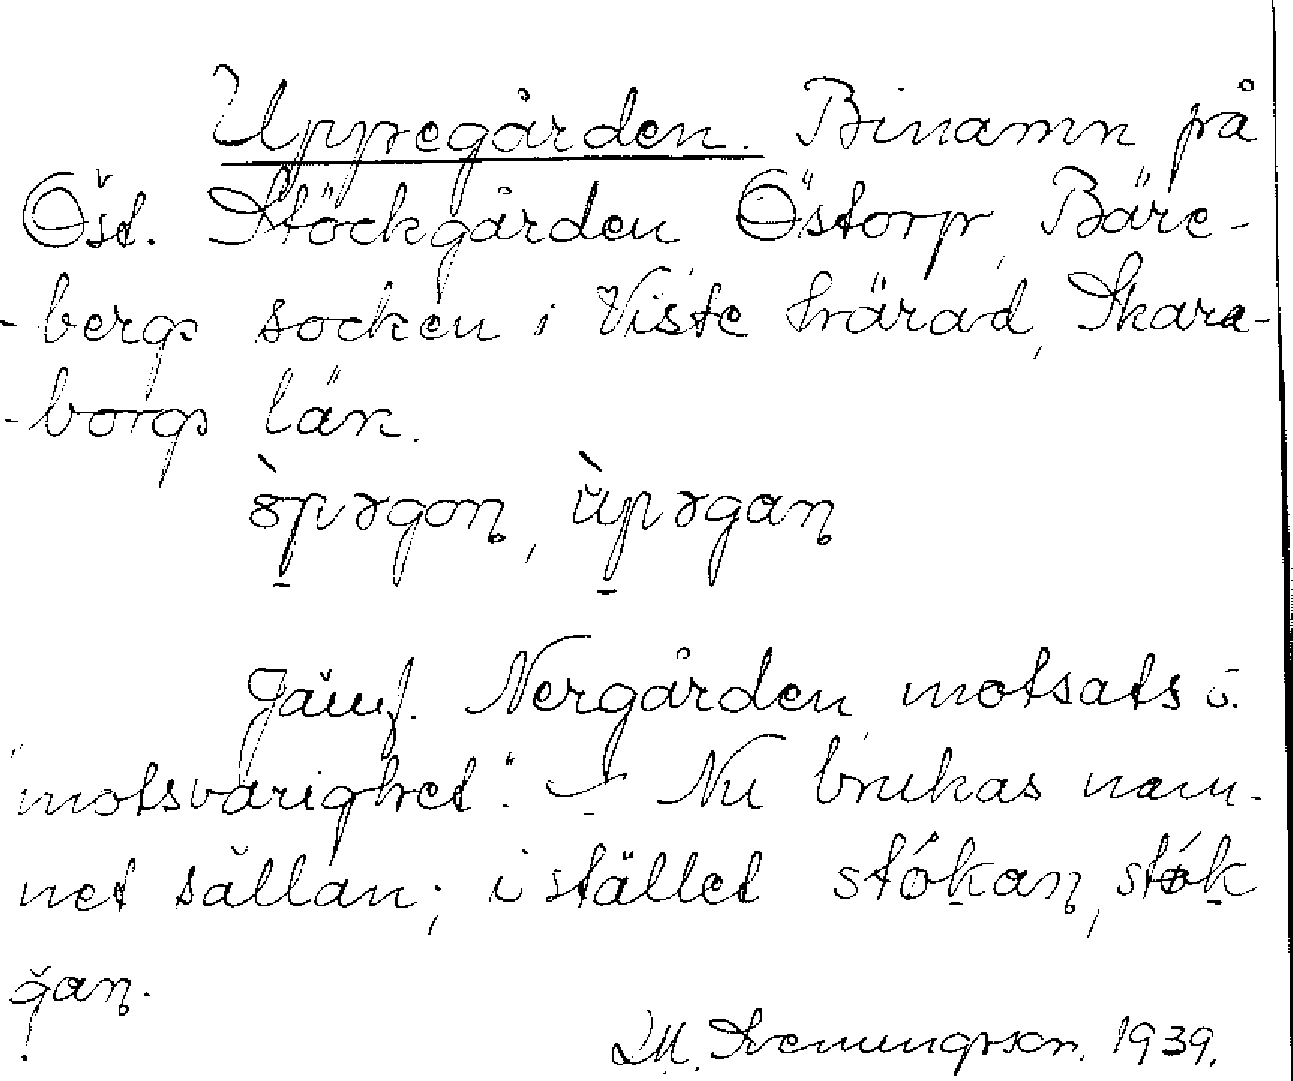 Uppregården. Binamn på
Öst. Stöckgården Östorp, Bäre-
-bergs socken i Viste härad, Skara-
-borgs län.
ò̱pəgon̥, ùpəgan̥
Jämf. Nergården "motsats o.
motsvarighet". – Nu brukas nam-
net sällan; i stället stók̠an̥, stók̠
ğan̥.
D.M. Svenungsson. 1939.